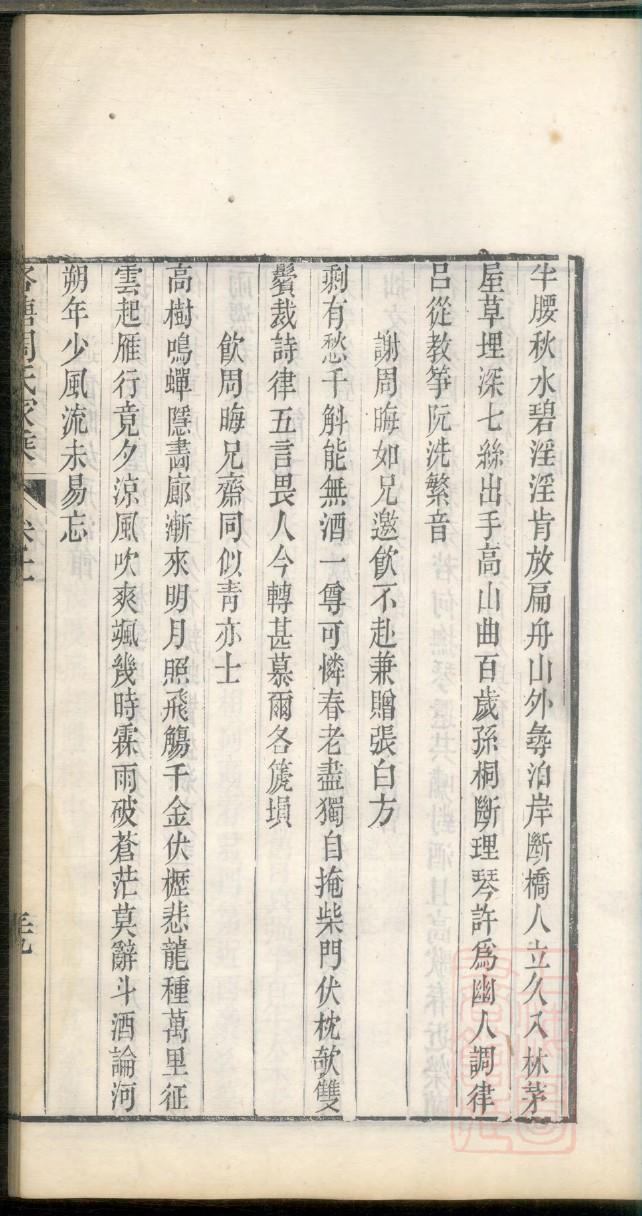 半腰秋水碧淫淫肯放扁舟山外尋泊岸斷橋人立久入林茅
屋草埋深七絲出手高山曲百歲孫桐斷理琴許爲幽人調律
呂從教箏阮洗繁音
謝周晦如兄邀飲不赴兼贈張白方
剩有愁千斛能無酒一尊可憐春老盡獨自掩柴門伏枕欹雙
鬢裁詩律五言畏人今轉甚慕爾各箎塤
飲周晦兄齋同似青亦士
高樹鳴蟬隱畵廊漸來明月照飛觴千金伏櫪悲龍種萬里征
雲起雁行竟夕涼風吹爽颯幾時霖雨破蒼茫莫辭斗酒論河
朔年少風流未易忘
周氏家